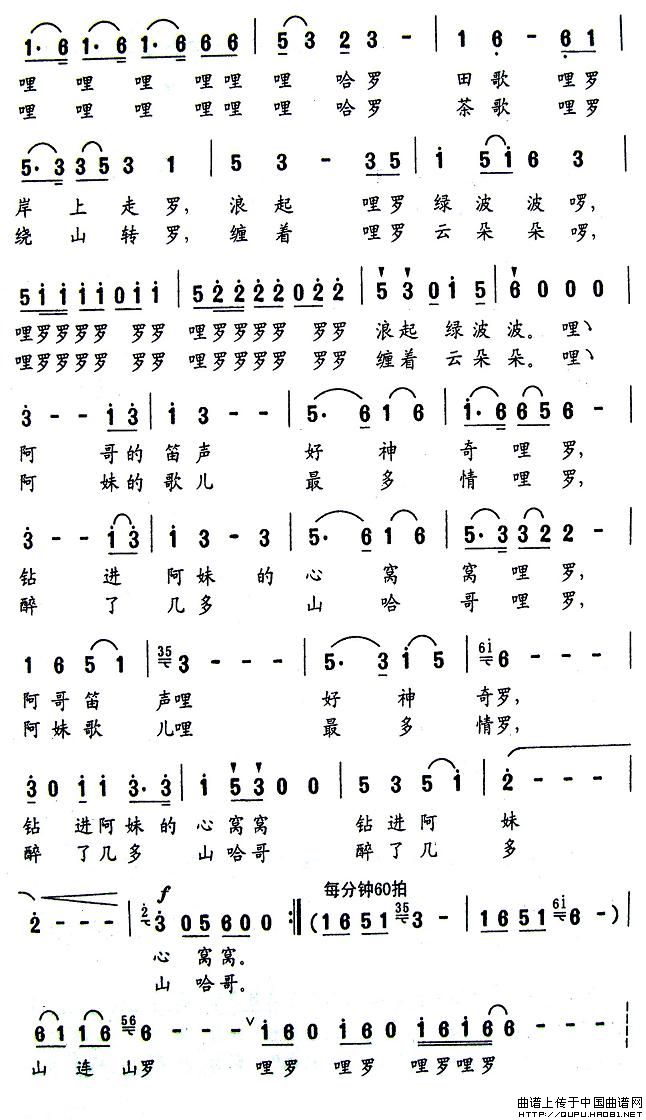 1·6 1·6 1·6 6 6 | 5 3 2 3 - | 1 6 - 6 1 |
哩 哩 哩 哩哩 哩 哈罗 田歌 哩罗
哩 哩 哩 哩哩 哩 哈罗 茶歌 哩罗
5·3 3 5 3 1 | 5 3 - 3 5 | i 5 i 6 3 |
岸 上 走 罗, 浪起 哩罗 绿波 波 啰,
绕 山 转 罗, 缠着 哩罗 云朵 朵 啰,
5 i i i i 0 i i | 5 2 2 2 2 0 2 2 | 5 3 0 i 5 | 6 0 0 0 |
哩罗罗罗罗 罗罗 哩罗罗罗罗 罗罗 浪起 绿波 波。 哩
哩罗罗罗罗 罗罗 哩罗罗罗罗 罗罗 缠着 云朵 朵。 哩
3 - - i 3 | i 3 - - | 5· 6 i 6 | i·6 6 5 6 - |
阿 哥的 笛声 好 神 奇 哩罗,
阿 妹的 歌儿 最 多 情 哩罗,
3 - - i 3 | i 3 - 3 | 5· 6 i 6 | 5·3 3 2 2 - |
钻 进 阿妹 的 心 窝 窝 哩罗,
醉 了 几多 山 哈 哥 哩罗,
1 6 5 1 | 35 3 - - - | 5· 3 i 5 | 6i 6 - - - |
阿哥笛 声哩 好 神 奇罗,
阿妹歌 儿哩 最 多 情罗,
3 0 i i 3·3 | i 5 3 0 0 | 5 3 5 i | 2 - - - |
钻 进阿妹的 心窝窝 钻进阿 妹
醉 了几多 山哈哥 醉了几 多
f 每分钟60拍
2 - - - | 2 3 0 5 6 0 0 :‖ (1 6 5 1 35 3 - | 1 6 5 1 6i 6 - ) |
心 窝窝。
山 哈哥。
6 1 1 6 56 6 - - - ∨ i 6 0 i 6 0 i 6 i 6 6 - - - |
山 连 山罗 哩罗 哩罗 哩罗哩罗
曲谱上传于中国曲谱网
http://QUPU.HAO81.NET